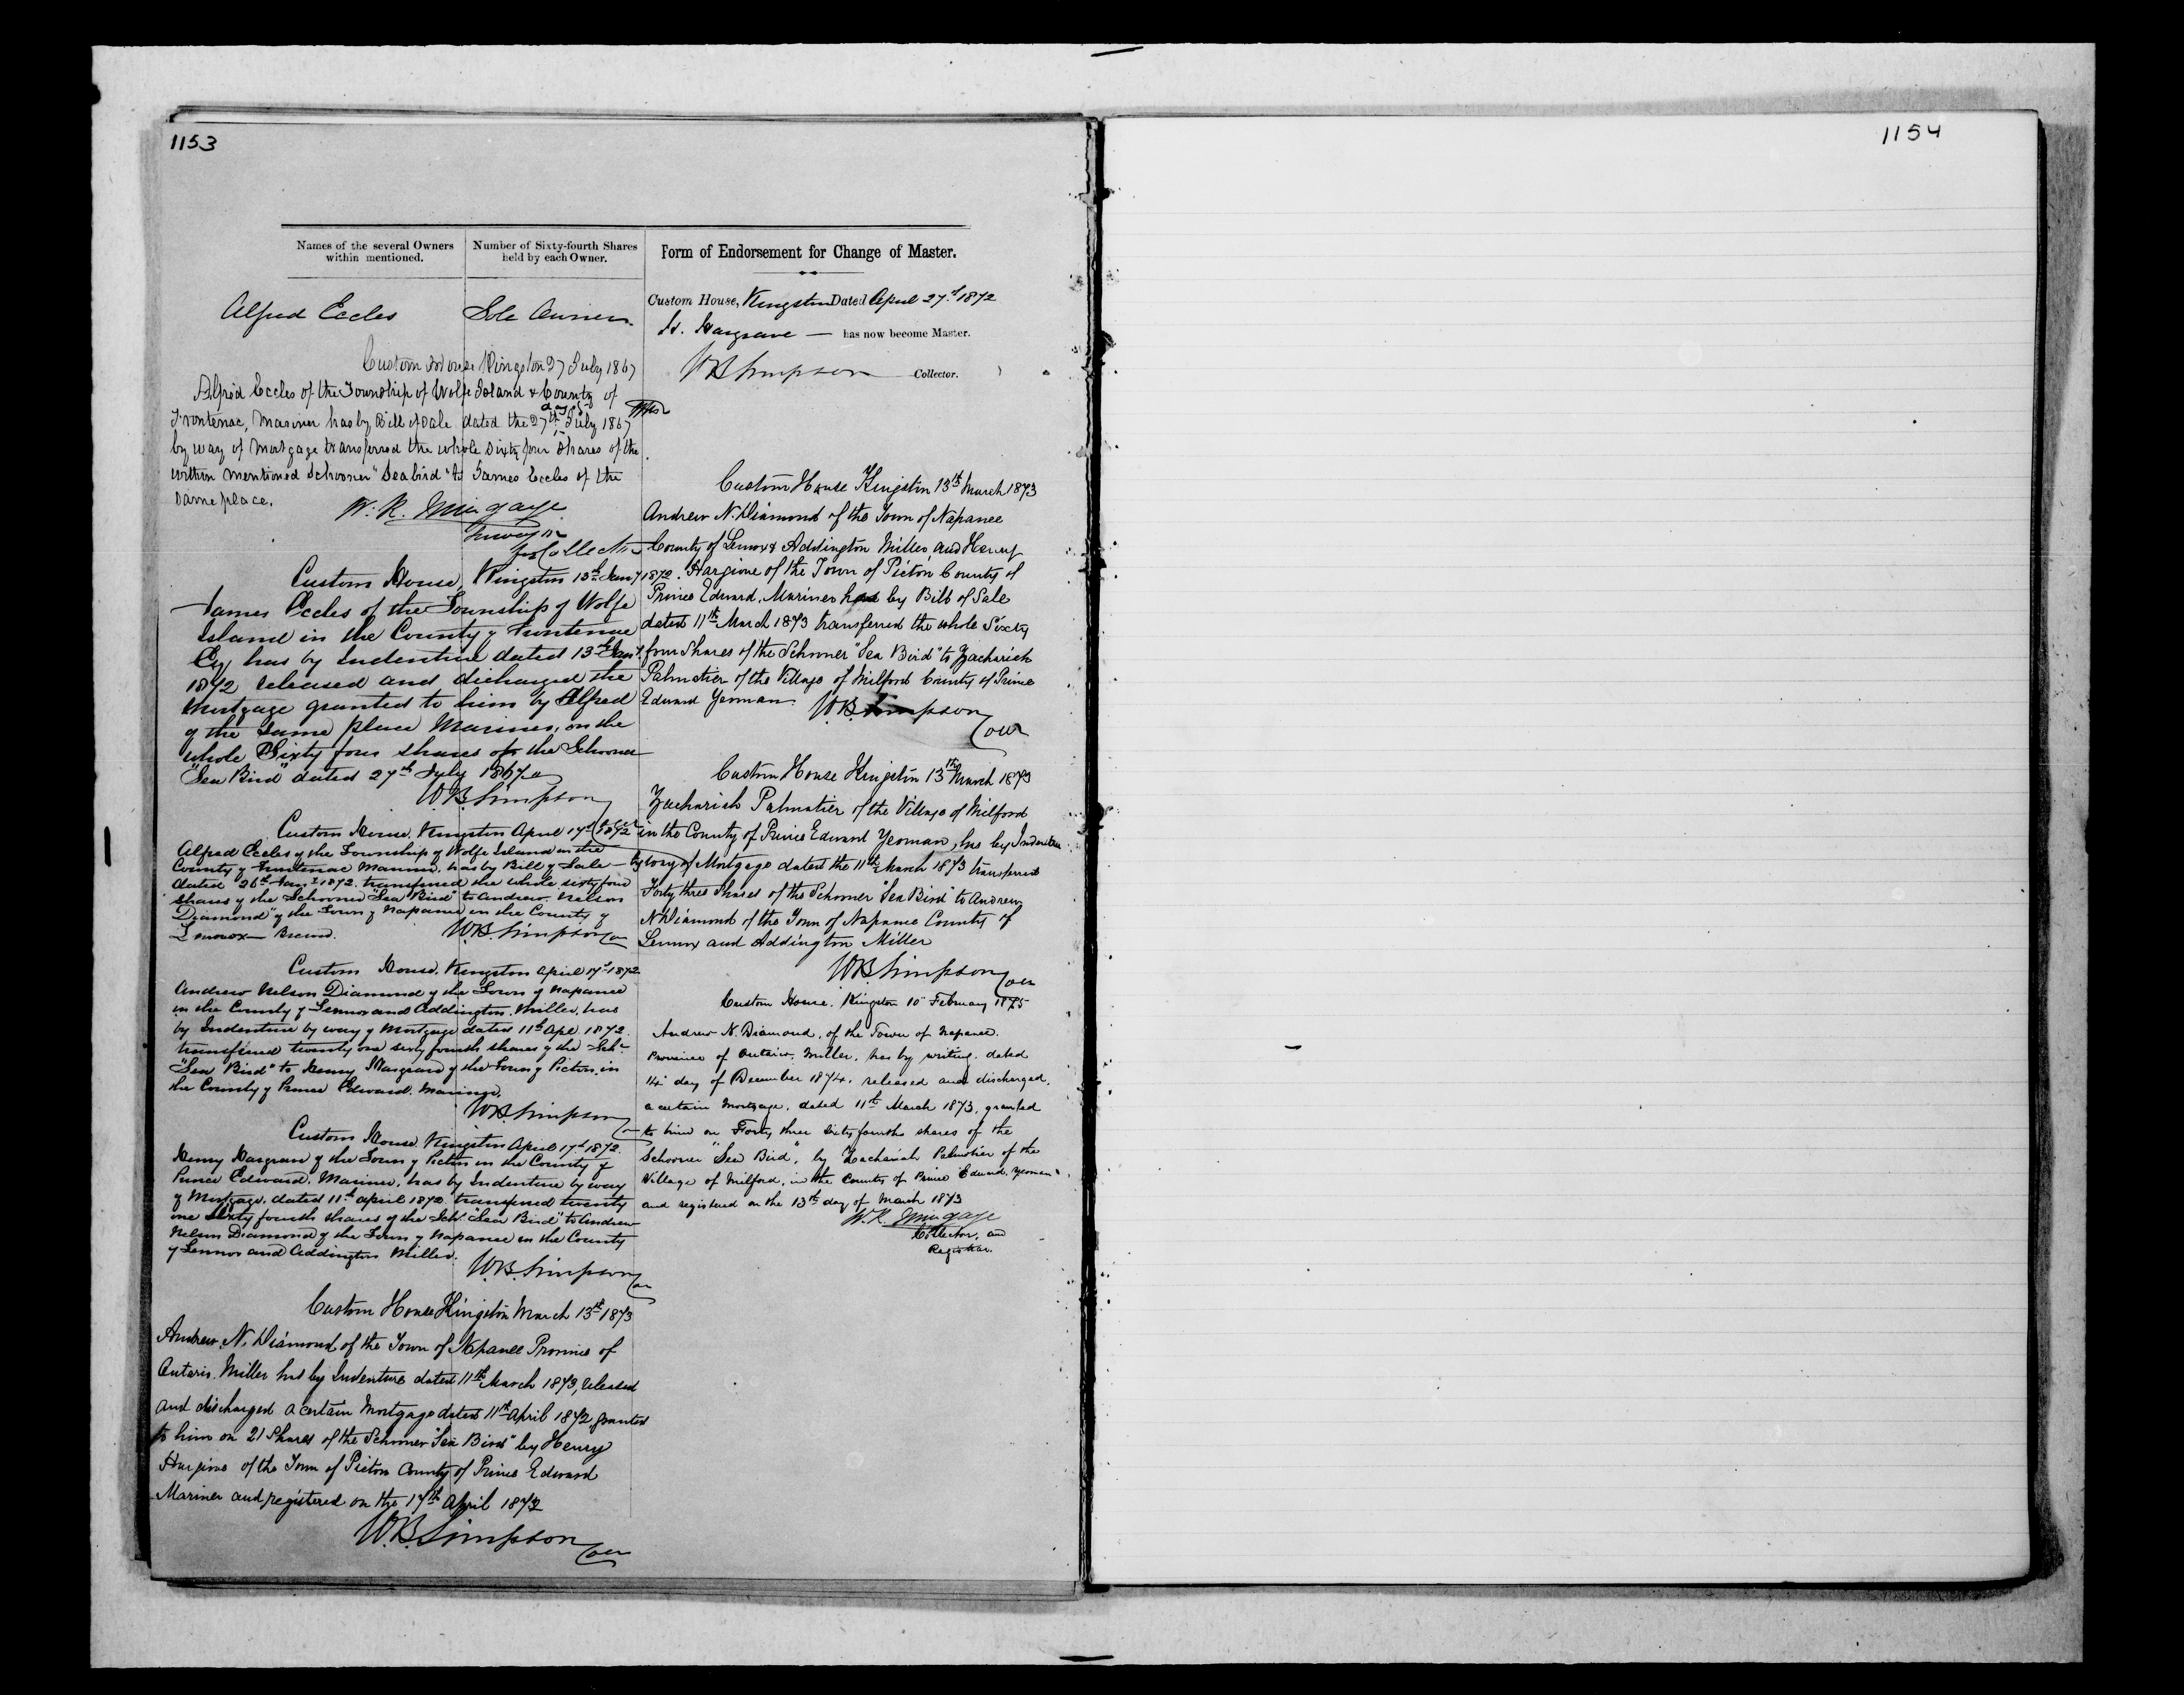 1153
Names of the several Owners
within mentioned.
Number of Sixty-fourth Shares
held by each Owner.
Alfred Eccles
Sole Owner
Custom House Kingston 27 July 1867
Alfred Eccles of the Township of Wolfe Island & County of
day of
Frontenac, Mariner has by Bill of Sale dated the 27th July 1867
by way of Mortgage transferred the whole Sixty four Shares of the
within mentioned Schooner "Seabird" to James Eccles of the
Same place.
W. R. Mingaye
Surveyor
for Collector
Custom House, Kingston 13th Jany 1872.
James Eccles of the Township of Wolfe
Island in the County of Frontenac
Esq has by Indenture dated 13th Jany
1872 released and discharged the
Mortgage granted to him by Alfred
of the Same place Mariner, on the
whole Sixty four shares of the Schooner
"Sea Bird" dated 27th July 1867
W.B. Simpson
Custom House, Kingston April 17d 1872
Alfred Eccles of the Township of Wolfe Island in the
County of Frontenac Mariner, has by Bill of Sale
dated 26th Jany 1872. transferred the whole sixty four
shares of the Schooner "Sea Bird" to Andrew Nelson
Diamond of the Town of Napanee in the County of
Lennox
W.B. Simpson
Custom House, Kingston April 17d 1872
Andrew Nelson Diamond of the Town of Napanee
in the County of Lennox and Addington, Miller, has
by Indenture by way of Mortgage dated 11th Apl 1872
transferred twenty one sixty fourth shares of the Schr
"Sea Bird" to Henry Hargrave of the Town of Picton, in
the County of Prince Edward, Mariner.
W.B. Simpson
Custom House, Kingston April 17d 1872.
Henry Hargrave of the Town of Picton in the County of
Prince Edward, Mariner, has by Indenture by way
of Mortgage, dated 11th April 1872 transferred twenty
one Sixty fourth shares of the Schr "Sea Bird" to Andrew
Nelson Diamond of the Town of Napanee in the County
of Lennox and Addington Miller.
W.B. Simpson
Custom House Kingston March 13th 1873
Andrew N. Diamond of the Town of Napanee Province of
Ontario. Miller has by Indenture dated 11th March 1873, released
and discharged a certain Mortgage dated 11th April 1872, granted
to him on 21 Shares of the Schooner "Sea Bird" by Henry
Hargrove of the Town of Picton County of Prince Edward
Mariner and registered on the 17th April 1872
W.B. Simpson
Form of Endorsement for Change of Master.
Custom House, Kingston Dated April 27d 1872
H. Hargrave — has now become Master.
WB Simpson Collector.
Custom House Kingston 13th March 1873
Andrew N. Diamond of the Town of Napanee
County of Lennox & Addington Miller, and Henry
Hargrove of the Town of Picton County of
Prince Edward, Mariner has by Bill of Sale
dated 11th March 1873 transferred the whole Sixty
four Shares of the Schooner "Sea Bird" to Zachariah
Palmatier of the Village of Milford County of Prince
Edward Yeoman
W.B. Simpson
Custom House Kingston 13th March 1873
Zachariah Palmatier of the Village of Milford
in the County of Prince Edward Yeoman, has by Indenture
by way of Mortgage dated the 11th March 1873 transferred
Forty three Shares of the Schooner "Sea Bird" to Andrew
N Diamond of the Town of Napanee County of
Lennox and Addington Miller
WB Simpson
Custom House. Kingston 10" February 1875
Andrew N. Diamond, of the Town of Napanee.
Province of Ontario. Miller, has by writing. dated
14" day of December 1874. released and discharged.
a certain Mortgage, dated 11th March 1873, granted
to him on Forty three sixty fourths shares of the
Schooner "Sea Bird", by Zachariah Palmatier of the
Village of Milford, in the County of Prince Edward, Yeoman.
and registered on the 13th day of March 1873
W.R. Mingaye
Collector, and
Registrar.
1154